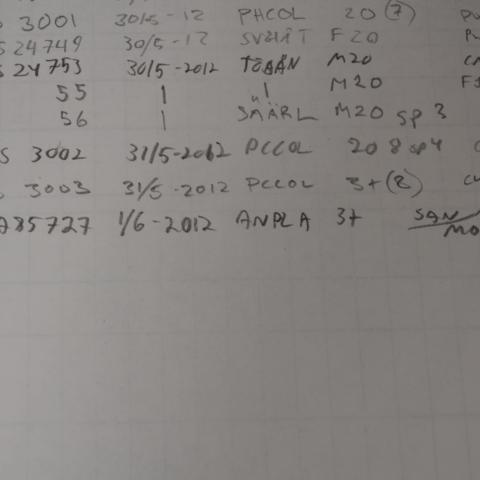 3001 30/5-12 PHCOL 20 (7)
S 24749 30/5-12 SVHIT F20
S 24753 30/5-2012 TOBAN M20
55 | | M20
56 | SMÄRL M20 SP 3
S 3002 31/5-2012 PCCOL 20 8 SP4
3003 31/5-2012 PCCOL 3+(8)
A85727 1/6-2012 ANPLA 3+ SAN/MO